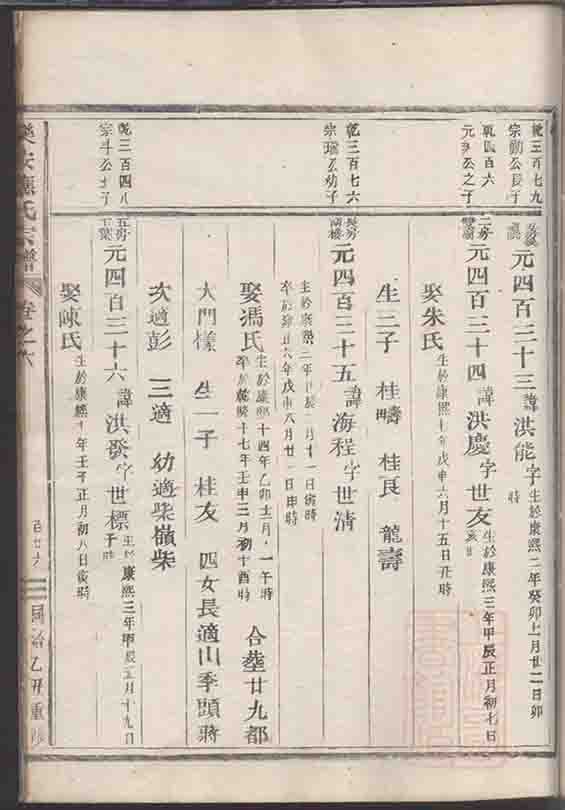 乾三百七九
宗勳公長子
元四百三十三諱洪能字
生於康熙二年癸卯七月廿二日卯
時
乾四百六
元爭公之子
二房
元四百三十四諱洪慶字世友
生於康熙三年甲辰正月初七日
亥時
娶朱氏
生於康熙七年戊申六月十五日丑時
生三子 桂疇 桂良 龍壽
乾三百七六
宗瑞公幼子
長房
前樓
元四百三十五諱海程字世清
生於康熙二年月十一日寅時
卒於雍正六年戊申八月廿一日申時
娶馮氏
生於康熙十四年乙卯十二月一午時
卒於乾隆十七年壬申三月初十酉時
合塟廿九都
大門樣 生一子 桂友 四女長適山季頭蔣
次適彭 三適 幼適柴嶺柴
乾三百四八
宗斗公七子
五房
元四百三十六諱洪發字世標
生於康熙三年甲辰五月十九日
子時
娶陳氏
生於康熙十一年壬子正月初八日寅時
樂安應氏宗譜 卷之六
百廿六
同治乙丑重修